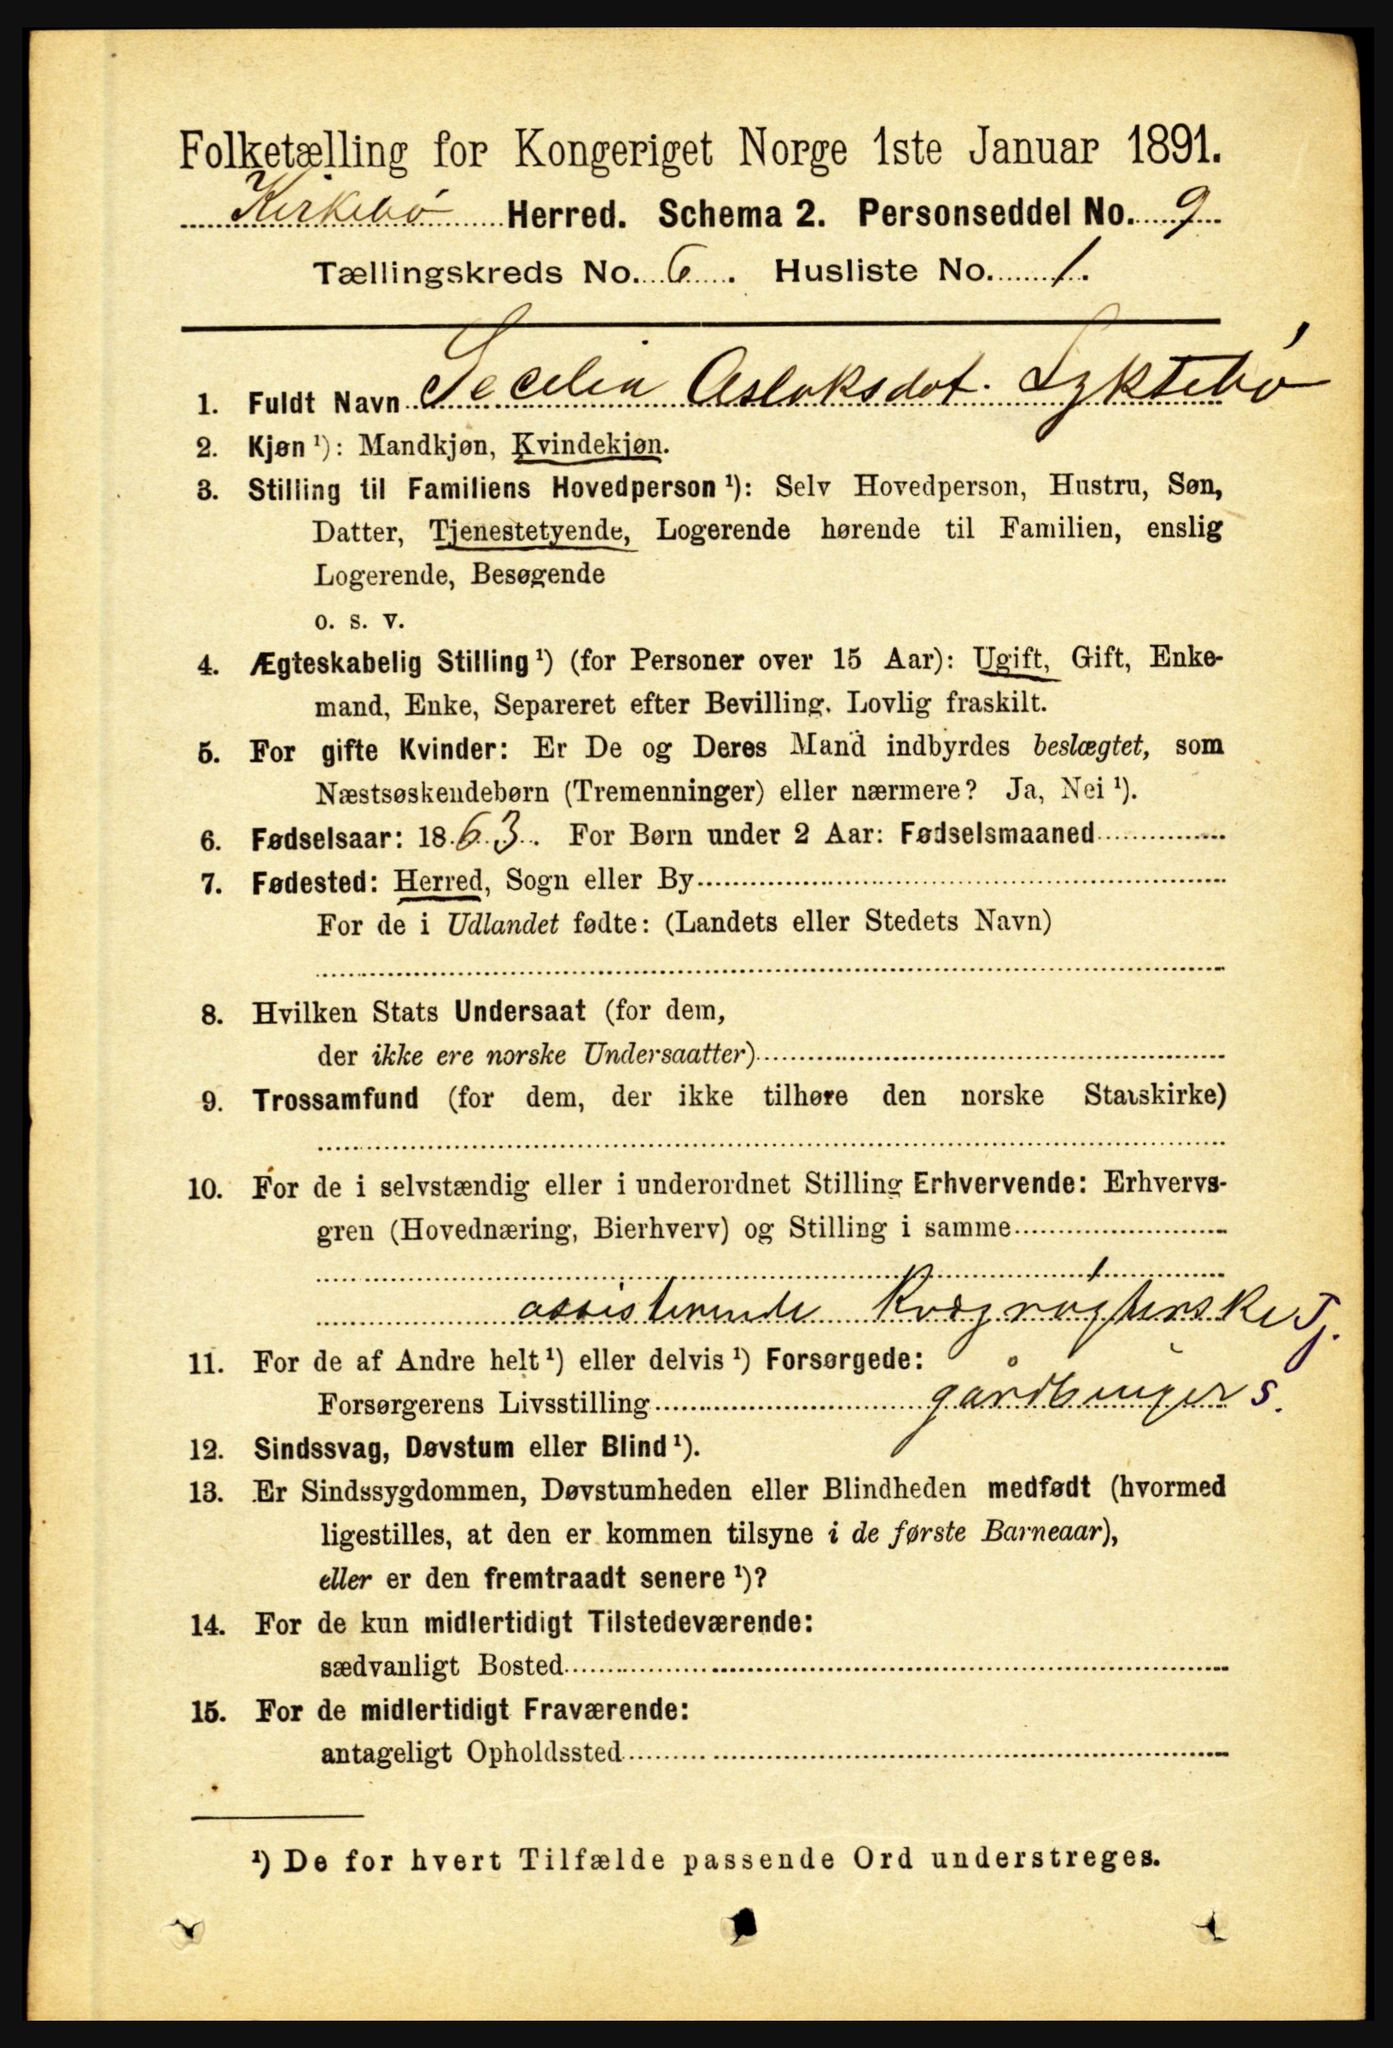 Folketælling for Kongeriget Norge 1ste Januar 1891.
Kirkebø Herred. Schema 2. Personseddel No. 9
Tællingskreds No. 6. Husliste No. 1.
1. Fuldt Navn Secelia Aslaksdot. Lyktebø
2. Kjøn ¹): Mandkjøn, Kvindekjøn.
3. Stilling til Familiens Hovedperson ¹): Selv Hovedperson, Hustru, Søn,
Datter, Tjenestetyende, Logerende hørende til Familien, enslig
Logerende, Besøgende
o. s. v.
4. Ægteskabelig Stilling ¹) (for Personer over 15 Aar): Ugift, Gift, Enke-
mand, Enke, Separeret efter Bevilling. Lovlig fraskilt.
5. For gifte Kvinder: Er De og Deres Mand indbyrdes beslægtet, som
Næstsøskendebørn (Tremenninger) eller nærmere? Ja, Nei ¹).
6. Fødselsaar: 1863. For Børn under 2 Aar: Fødselsmaaned
7. Fødested: Herred, Sogn eller By
For de i Udlandet fødte: (Landets eller Stedets Navn)
8. Hvilken Stats Undersaat (for dem,
der ikke ere norske Undersaatter)
9. Trossamfund (for dem, der ikke tilhøre den norske Statskirke)
10. For de i selvstændig eller i underordnet Stilling Erhvervende: Erhvervs-
gren (Hovednæring, Bierhverv) og Stilling i samme
assisterende Kvægrøgterske Tj.
11. For de af Andre helt ¹) eller delvis ¹) Forsørgede:
Forsørgerens Livsstilling gårdbruger s.
12. Sindssvag, Døvstum eller Blind ¹).
13. Er Sindssygdommen, Døvstumheden eller Blindheden medfødt (hvormed
ligestilles, at den er kommen tilsyne i de første Barneaar),
eller er den fremtraadt senere ¹)?
14. For de kun midlertidigt Tilstedeværende:
sædvanligt Bosted
15. For de midlertidigt Fraværende:
antageligt Opholdssted
¹) De for hvert Tilfælde passende Ord understreges.